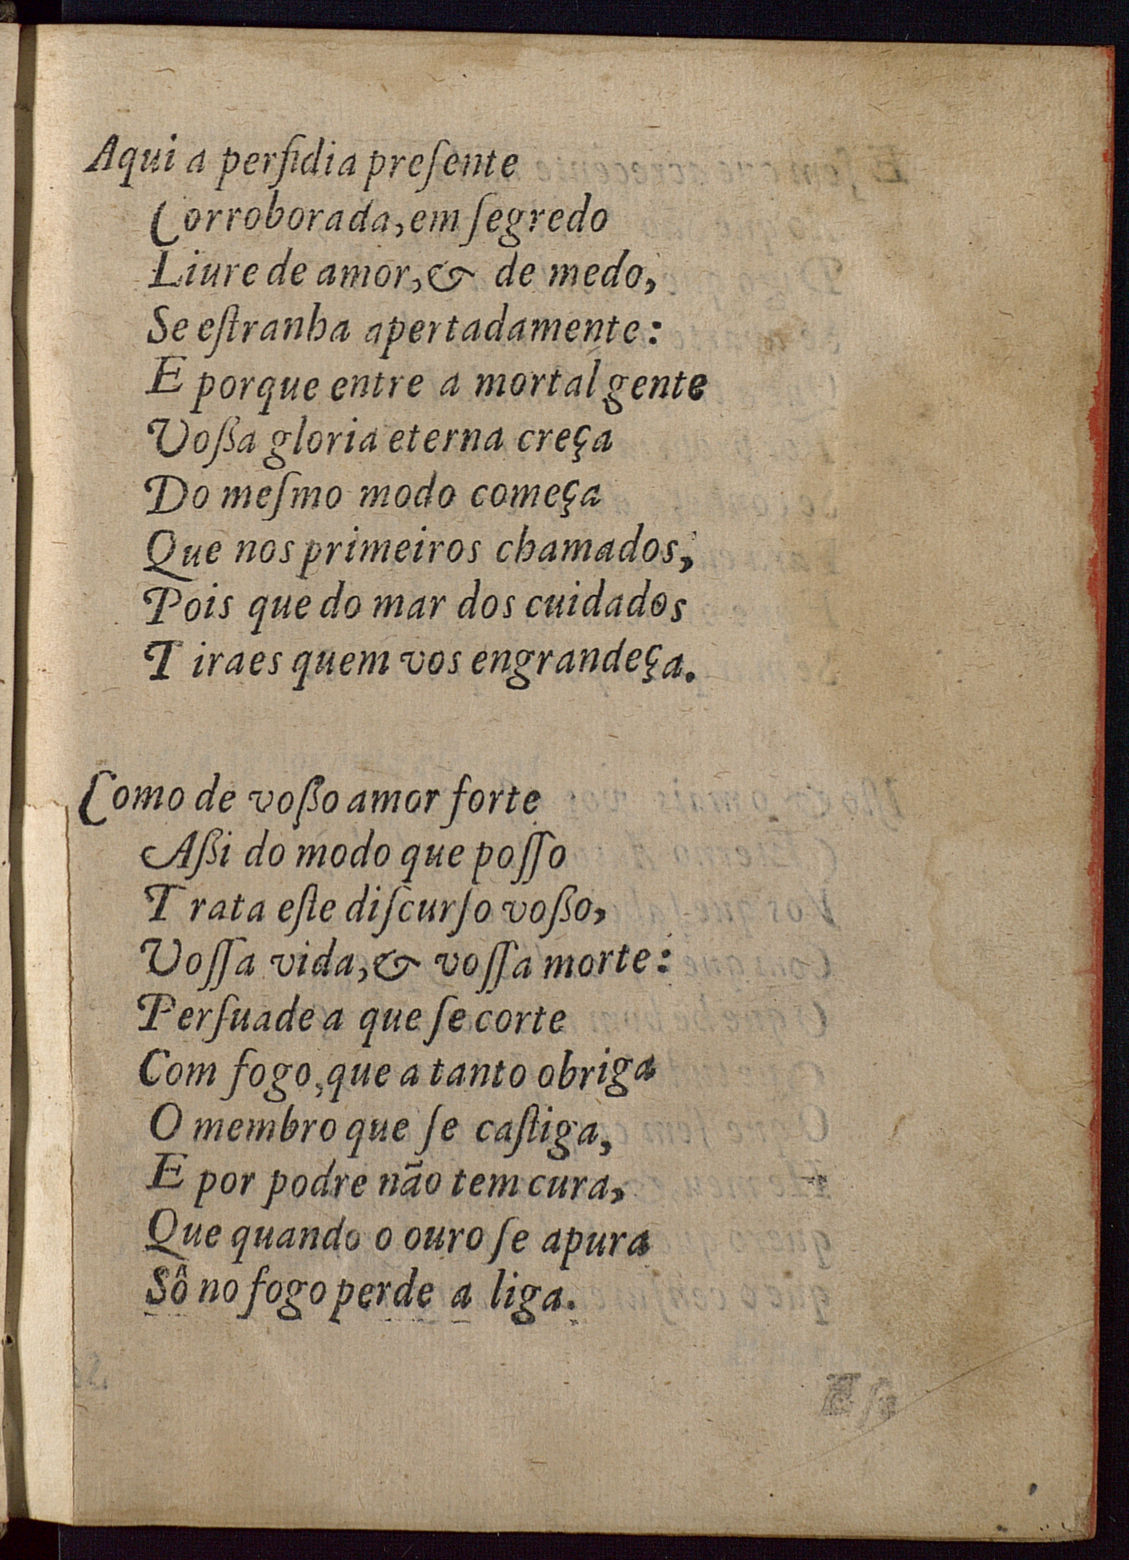 Aqui a perfidia preſente
Corroborada, em ſegredo
Liure de amor, & de medo,
Se eſtranha apertadamente:
E porque entre a mortal gente
Voßa gloria eterna creça
Do meſmo modo começa
Que nos primeiros chamados,
Pois que do mar dos cuidados
Tiraes quem vos engrandeça.
Como de voßo amor forte
Aßi do modo que poſſo
Trata eſte diſcurſo voßo,
Voſſa vida, & voſſa morte:
Perſuade a que ſe corte
Com fogo, que a tanto obriga
O membro que ſe caſtiga,
E por podre não tem cura,
Que quando o ouro ſe apura
Sô no fogo perde a liga.